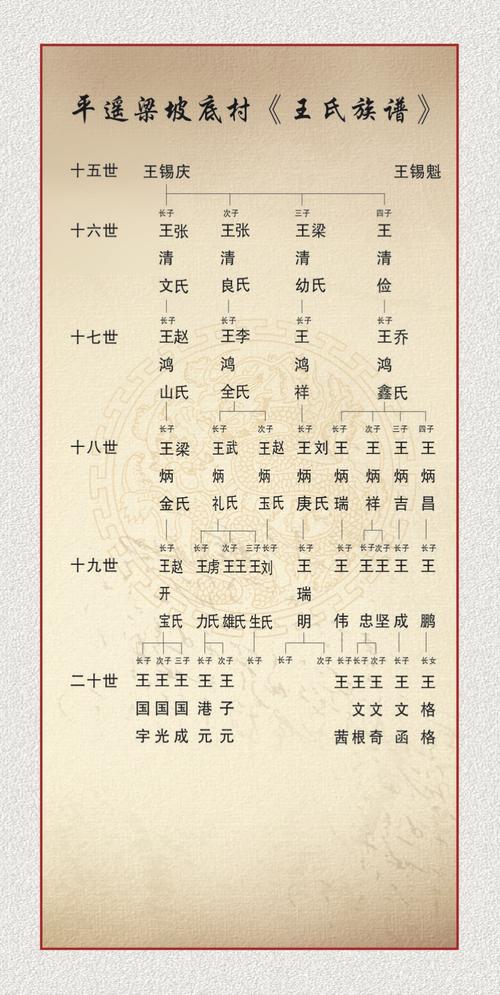 平遥梁坡底村《王氏族谱》
十五世 王锡庆 王锡魁
长子 次子 三子 四子
十六世 王张 王张 王梁 王
清 清 清 清
文氏 良氏 幼氏 俭
长子 长子 长子 长子
十七世 王赵 王李 王 王乔
鸿 鸿 鸿 鸿
山氏 全氏 祥 鑫氏
长子 长子 次子 长子 长子 次子 三子 四子
十八世 王梁 王武 王赵 王刘 王 王 王 王
炳 炳 炳 炳 炳 炳 炳 炳
金氏 礼氏 玉氏 庚氏 瑞 祥 吉 昌
长子 长子 次子 三子 长子 长子 长子 长子 次子 长子 长子
十九世 王赵 王虏 王王 王刘 王 王 王 王 王 王
开 瑞
宝氏 力氏 雄氏 生氏 明 伟 忠 坚 成 鹏
长子 次子 三子 长子 次子 长子 长子 次子 长子 长子 次子 长子 长女
二十世 王 王 王 王 王 王 王 王 王 王
国 国 国 港 子 文 文 文 格
宇 光 成 元 元 茜 根 奇 函 格